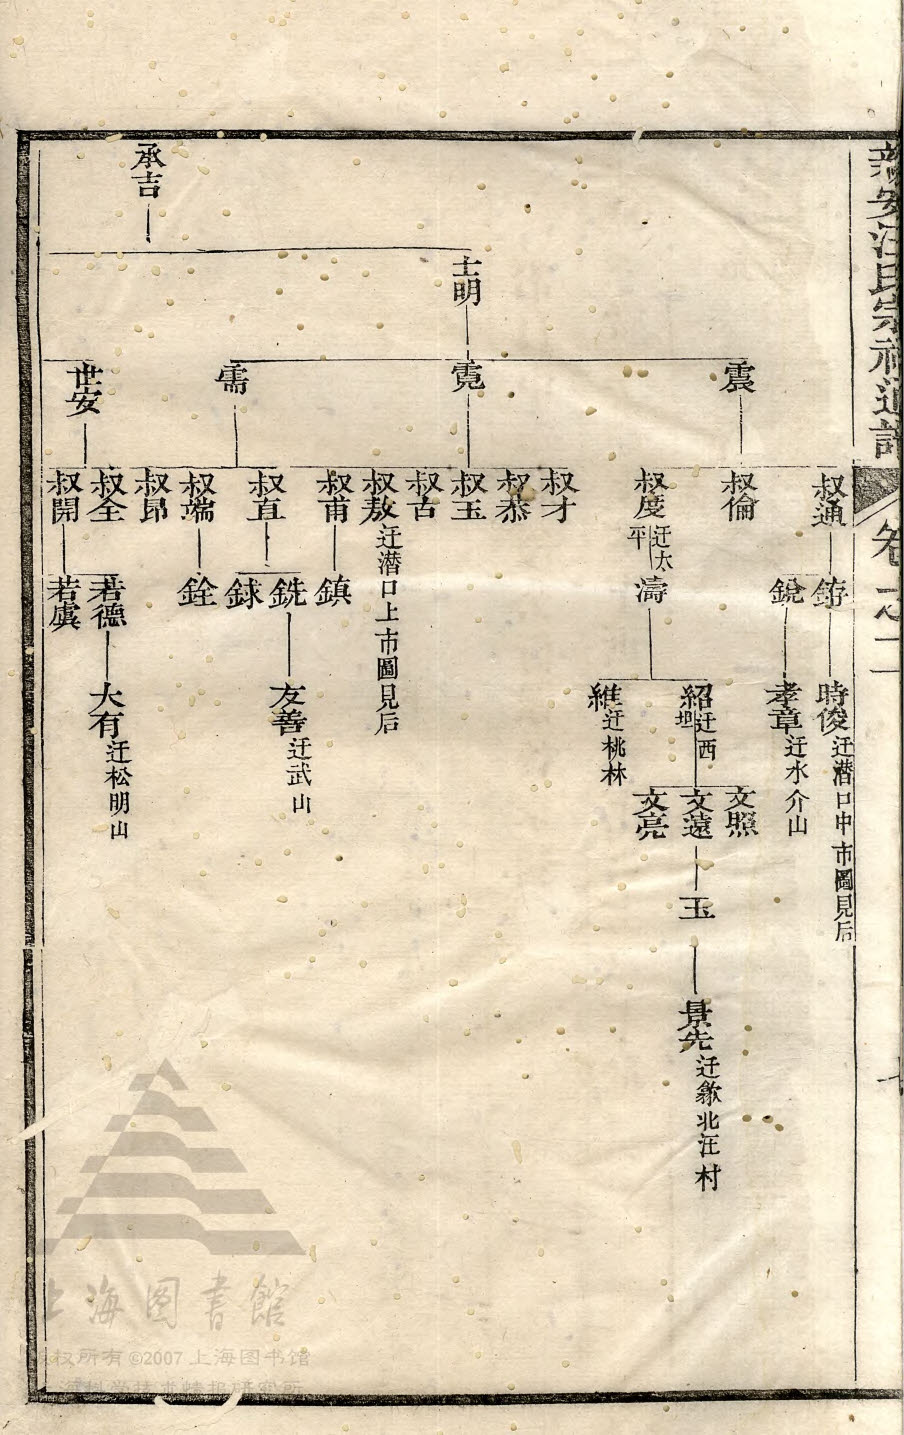 新安汪氏宗祠通譜
卷之二
七
承吉
士明
震
霓
需
世安
叔通
叔倫
叔度 迁太平
叔才
叔恭
叔玉
叔古
叔敖 迁潜口上市圖見后
叔甫
叔直
叔端
叔昂
叔全
叔開
銳
濤
鎮
銑
銶
銓
若德
若虞
時俊 迁潜口中市圖見后
孝章 迁水介山
紹 迁西坦
維 迁桃林
友善 迁武山
大有 迁松明山
文照
文遠
文亮
玉
景先 迁歙北汪村
上海图書館
权所有 ©2007 上海图书馆